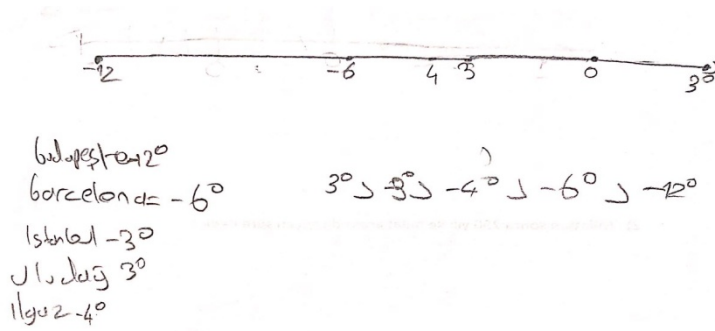 -12 -6 4 3 0 3°
Budapeşte -12°
Barcelona = -6°
İstanbul -3°
Uludağ 3°
Ilgaz -4°
3° > -3° > -4° > -6° > -12°